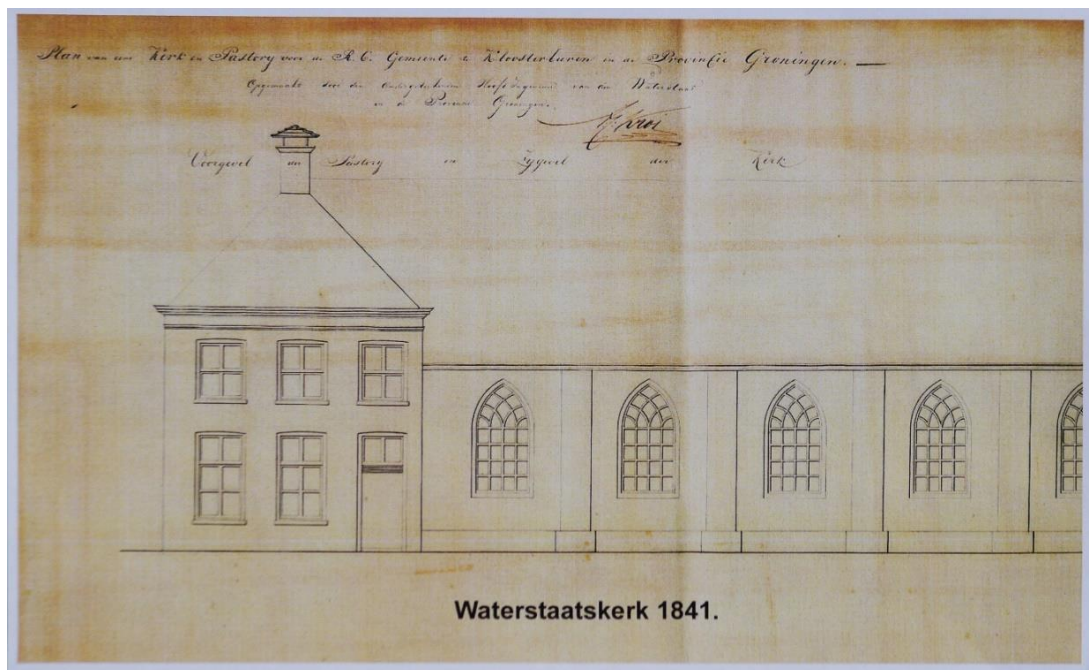 Plan van een Kerk en Pastory voor de R. C. Gemeente te Kloosterburen in de Provincie Groningen.
Opgemaakt door den Ondergeteekenden Hoofdingenieur van den Waterstaat
in de Provincie Groningen.
Voorgevel der Pastory en Zygevel der Kerk
Waterstaatskerk 1841.